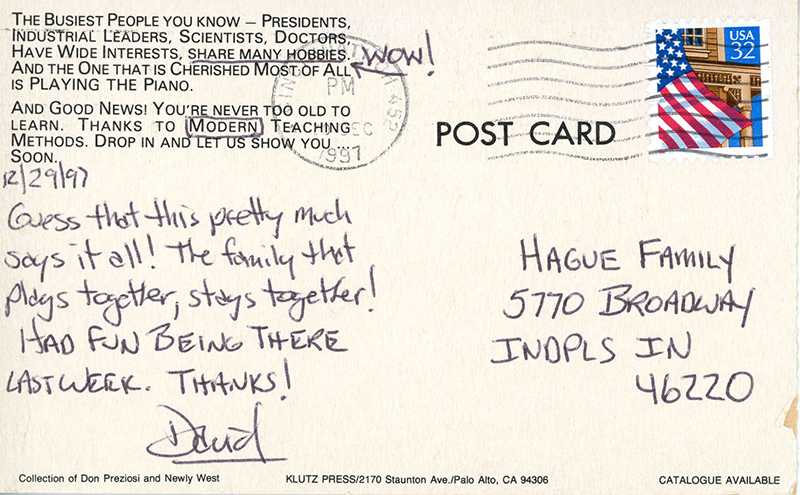 THE BUSIEST PEOPLE YOU KNOW — PRESIDENTS,
INDUSTRIAL LEADERS, SCIENTISTS, DOCTORS,
HAVE WIDE INTERESTS, SHARE MANY HOBBIES.
WOW!
AND THE ONE THAT IS CHERISHED MOST OF ALL
IS PLAYING THE PIANO.
AND GOOD NEWS! YOU'RE NEVER TOO OLD TO
LEARN. THANKS TO MODERN TEACHING
METHODS. DROP IN AND LET US SHOW YOU ...
SOON.
PM
1997
452
USA
32
POST CARD
12/29/97
Guess that this pretty much
says it all! The family that
plays together, stays together!
HAD FUN BEING THERE
LAST WEEK. THANKS!
David
HAGUE FAMILY
5770 BROADWAY
INDPLS IN
46220
Collection of Don Preziosi and Newly West
KLUTZ PRESS/2170 Staunton Ave./Palo Alto, CA 94306
CATALOGUE AVAILABLE